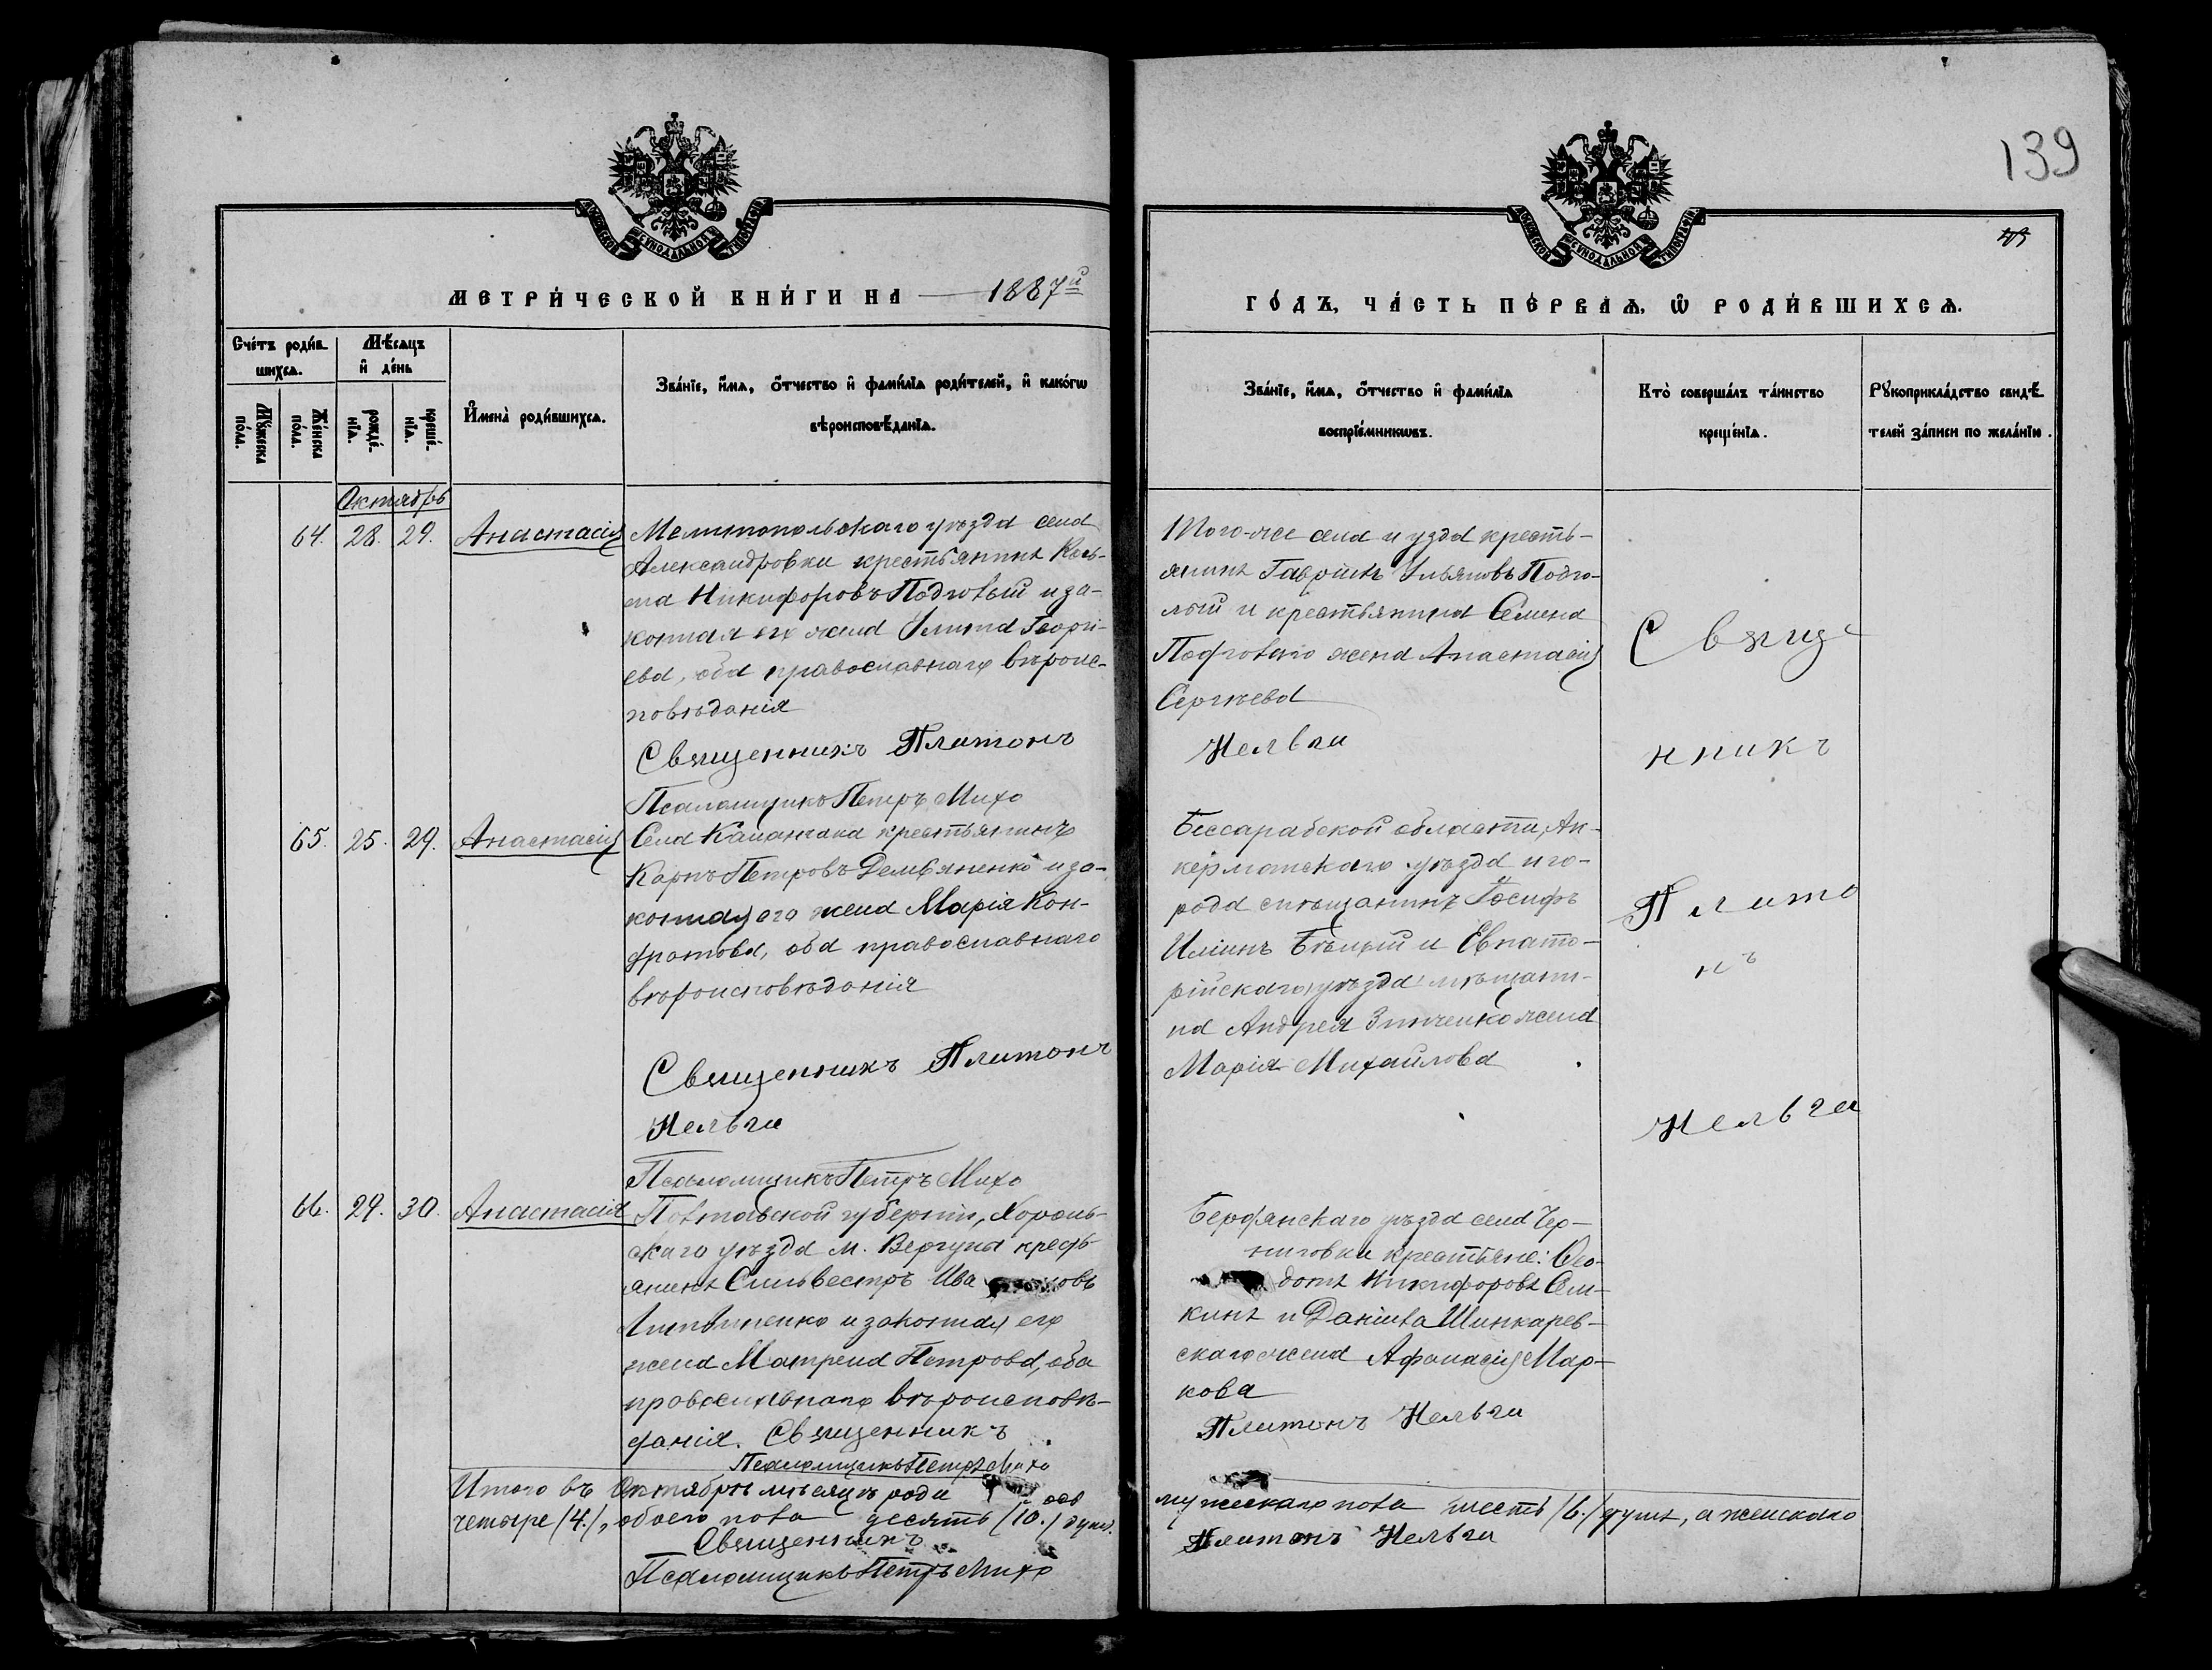 139
МЕТРИ́ЧЕСКОЙ КНИ́ГИ НА 1887й
ГО́ДЪ, ЧА́СТЬ ПЕ́РВАѦ, Ѡ҆ РОДИ́ВШИХСѦ.
Сче́тъ роди́вшихсѧ.
Мѹ́жеска по́ла.
Же́нска по́ла.
Мѣ́сѧцъ и҆ де́нь
рожде́нїѧ.
креще́нїѧ.
И҆мена̀ роди́вшихсѧ.
Зва́нїе, и҆́мѧ, ѻ҆́тчество и҆ фами́лїѧ роди́телей, и҆ како́гѡ
вѣроисповѣ́данїѧ.
Зва́нїе, и҆́мѧ, ѻ҆́тчество и҆ фами́лїѧ
воспрїе́мникѡвъ.
Кто̀ соверша́лъ та́инство
креще́нїѧ.
Рѹкоприкла́дство свидѣ́телей за́писи по жела́нїю.
Октябрь
64. 28. 29. Анастасія
Мелитопольскаго уѣзда села
Александровки крестьянинъ Кось-
ма Никифоровъ Подголый и за-
конная его жена Улита Георгі-
ева, оба православнаго вѣроис-
повѣданія
Священникъ Платонъ
Псаломщикъ Петръ Михо
Того-же села и узда кресть-
янинъ Гавріилъ Ульяновъ Подго-
лый и крестьянина Семена
Подголаго жена Анастасія
Сергѣева
Нельги
Свяще
нникъ
65. 25. 29. Анастасія
Села Каланчака крестьянинъ
Карпъ Петровъ Демьяненко и за-
конная его жена Марія Кон-
dратова, оба православнаго
вѣроисповѣданія
Священникъ Платонъ
Нельги
Псаломщикъ Петръ Михо
Бессарабской области, Ак-
керманскаго уѣзда и го-
рода мѣщанинъ Іосифъ
Ильинъ и Евпато-
рійскаго уѣзда мѣщани-
на Андрея Зинченко жена
Марія Михайлова
Плато
нъ
Нельги
66. 29. 30. Анастасія
Полтавской губерніи, Хороль-
скаго уѣзда м. Вергуна кресть-
янинъ Сильвестръ Ива новъ
Литвиненко и законная его
жена Матрена Петрова, оба
православнаго вѣроисповѣ-
данія. Священникъ
Псаломщикъ Петръ Михо
Бердянскаго уѣзда села Чер-
ниговки крестьяне: Ѳео-
дотъ Никифоровъ Сем-
кинъ и Даніила Шинкарев-
скаго жена Афанасія Мар-
кова
Платонъ Нельги
Итого въ Октябрѣ мѣсяцѣ роди ось
мужескаго пола шесть /6./ душъ, а женскаго
четыре /4./, обоего пола десять /10./ душъ.
Священникъ Платонъ Нельги
Псаломщикъ Петръ Михо